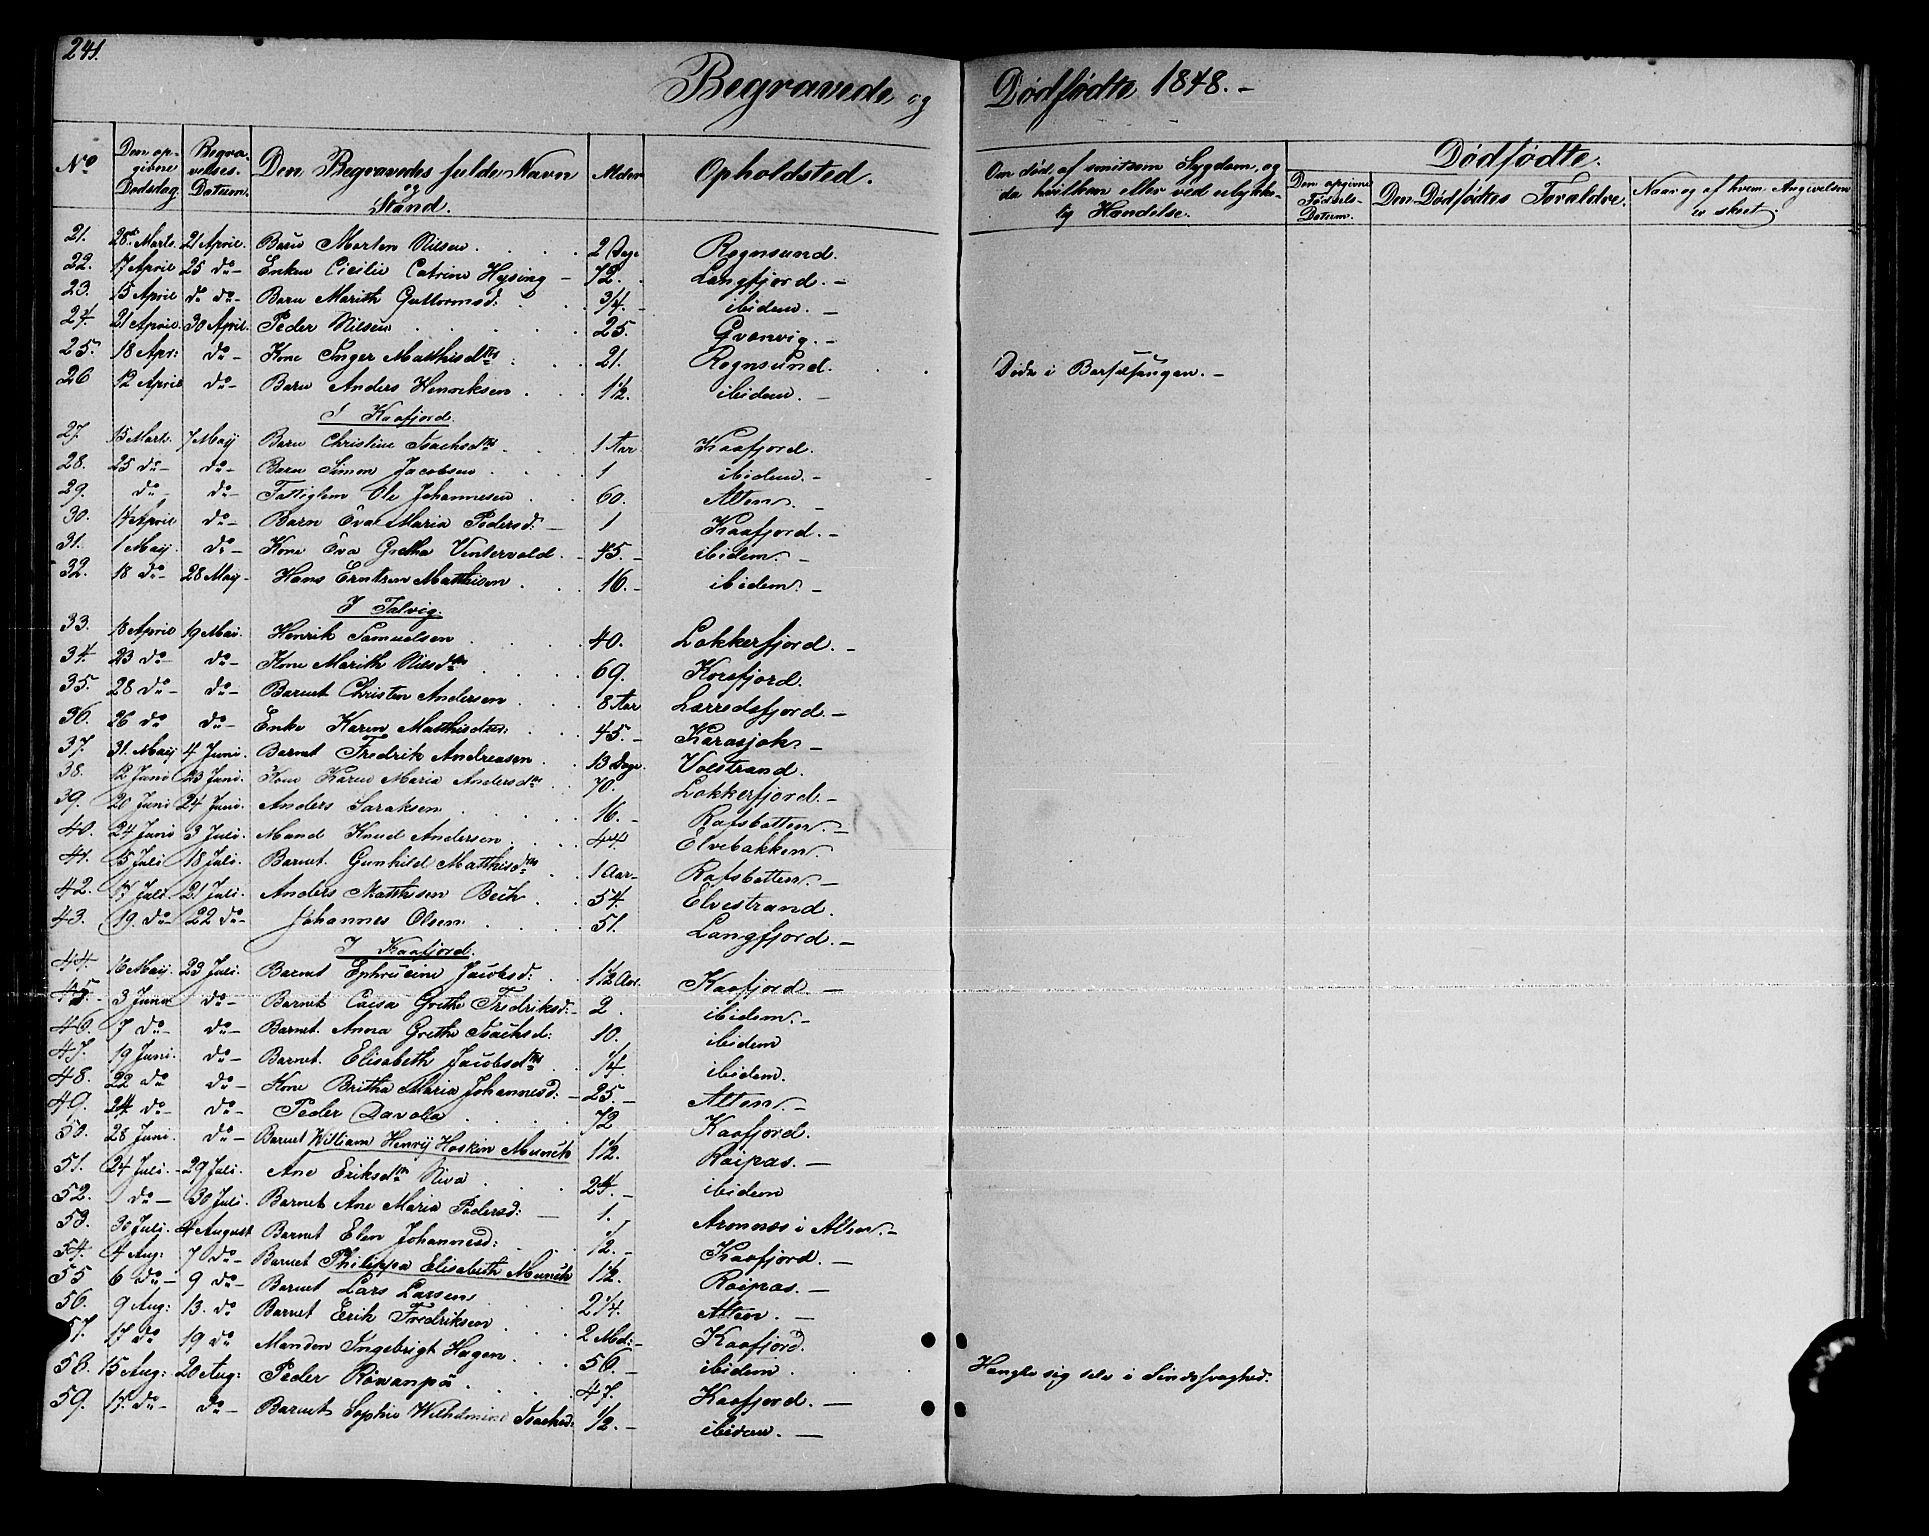 241.
Begravede og Dødfødte 1848.-
No Den opgivne Dødsdag. Begravelses-Datum. Den Begravedes fulde Navn og Stand. Alder Opholdsted. Om død, af smitsom Sygdom, og da hvilken eller ved ulykkelig Hændelse. Dødfødte. Den opgivne Fødsels-Datum. Den Dødfødtes Forældre. Naar og af hvem Angivelsen er skeet.
21. 28 Marts. 21 April. Barn Morten Nilsen 2 Dage Rognsund.
22. 17 April 25 do- Enken Cicilie Catrine Hysing - 72. Langfjord.-
23. 15 April do do- Barn Marith Guttormsd: 3/4.- ibidem.-
24. 21 April. 30 April. Peder Nilsen 25. Qvænvig.-
25. 18 Apr: do- Kone Inger Matthisdtr 21. Rognsund. Døde i Barselsængen.-
26 12 April do- Barn Anders Henriksen 1 1/2. ibidem.-
I Kaafjord.
27. 15 Marts. 7 Maij Barn Christine Isachsdtr 1 Aar Kaafjord.
28. 25 do- do- Barn Simon Jacobsen 1 ibidem.-
29. do- do- Fattiglem Ole Johannesen 60. Alten.-
30. 14 April do- Barn Eva Maria Pedersd:- 1 Kaafjord.-
31. 1 Maij. do- Kone Eva Gretha Vintervold. 45.- ibidem.-
32. 18 do- 28 May- Hans Erntsen Matthisen 16.- ibidem.-
I Talvig.
33. 18 April 19 Mai. Henrik Samuelsen 40. Lokkerfjord.-
34. 23 do- do- Kone Marith Nilsdtr 69. Korsfjord.
35. 28 do- do- Barnet Christen Andersen 8 Aar Lærredsfjord.-
36. 26 do do- Enke Karen Matthisdtr: 45.- Karasjok-
37. 31. Maij 4 Juni. Barnet Fredrik Andreasen 13 Dage. Volstrand.
38. 12 Juni 23 Juni. Kone Karen Maria Andersdtr 70. Lokkerfjord.-
39. 20 Juni 24 Juni. Anders Isaraksen 16.- Rafsbotten.-
40. 24 Juni 3 Juli. Mand Knud Andersen 44. Elvebakken.
41. 15 Juli 18 Juli. Barnet. Gunhild Matthisdtr 1 Aar- Rafsbotten.-
42. 17 Juli. 21 Juli. Anders Matthisen Bech 54. Elvestrand.
43. 19. do- 22 do- Johannes Olsen 51. Langfjord.-
I Kaafjord.
44. 16 Maij. 23 Juli. Barnet Ephrucine Jacobsd: 1 1/2 Aar. Kaafjord.-
45.- 3 Juni do- Barnet Caisa Grethe Fredriksd:- 2. ibidem.-
46. 7 do- do- Barnet. Anna Grethe Isachsd: 10. ibidem
47. 19 Juni. do- Barnet. Elisabeth Jacobsdtr 1/4. ibidem.
48. 22 do do- Kone Britha Maria Johannesd:- 25.- Alten.-
49. 24 do- do- Peder Davola 72 Kaafjord.
50. 28 Juni. do- Barnet William Henrij Hoskin Munck 1 1/2. Raipas.-
51. 24 Juli.- 29 Juli. Ane Eriksdtr Niva 24.- ibidem
52. do- 30 Juli. Barnet Ane Maria Pedersd:- 1. Aronnæs i Alten.-
53. 30 Juli. 4 August Barnet Elen Johannesd: 1/2.- Kaafjord.-
54. 4 Aug: 7 do- Barnet Philippa Elisabeth Munck 1 1/2. Raipas.-
55 6 do- 9 do- Barnet Lars Larsen 2 1/4. Alten.-
56. 9 Aug: 13. do Barnet Erik Fredriksen 2 Md:- Kaafjord.
57. 17 do 19 do- Manden Ingebrigt Hagen 56.- ibidem. Hængte sig selv i Sindssvaghed.
58. 15 Aug: 20 Aug: Peder Rovanpä 47. Kaafjord.-
59. 17. do- do- Barnet Sophie Wilhelmine Isachsd: 1/2.- ibidem.-